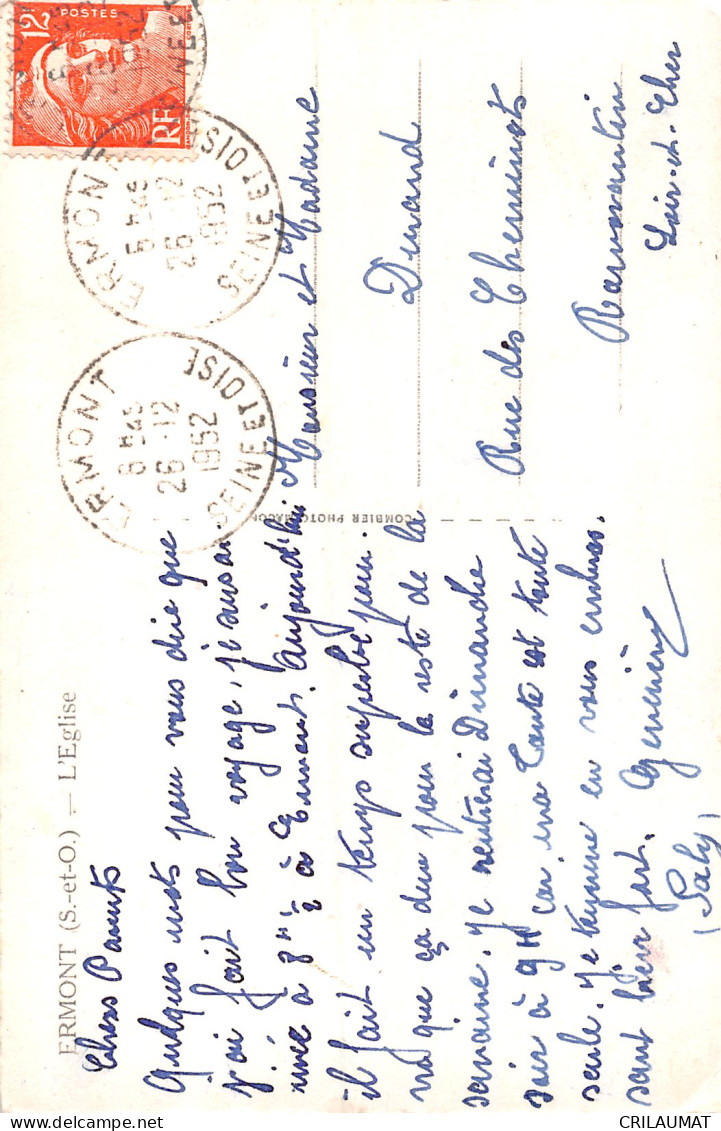 ERMONT (S.-et-O.) — L'Eglise
Chers Parents
Quelques mots pour vous dire que
j'ai fait bon voyage, je suis arri
vée à 8H½ à Ermont. Aujourd'hui
il fait un temps superbe pour
vu que ça dure pour la reste de la
semaine. Je rentrerai Dimanche
soir à 9H car ma Tante est toute
seule. Je termine en vous embras.
sant bien fort. Geneviève
(Saly)
COMBIER PHOTO MACON
Monsieur et Madame
Durand
Rue des Cheminots
Romorantin
Loir-et-Cher
12F
POSTES
RF
ERMONT
26-12
1952
SEINE ET OISE
ERMONT
26-12
1952
SEINE ET OISE
CRILAUMAT